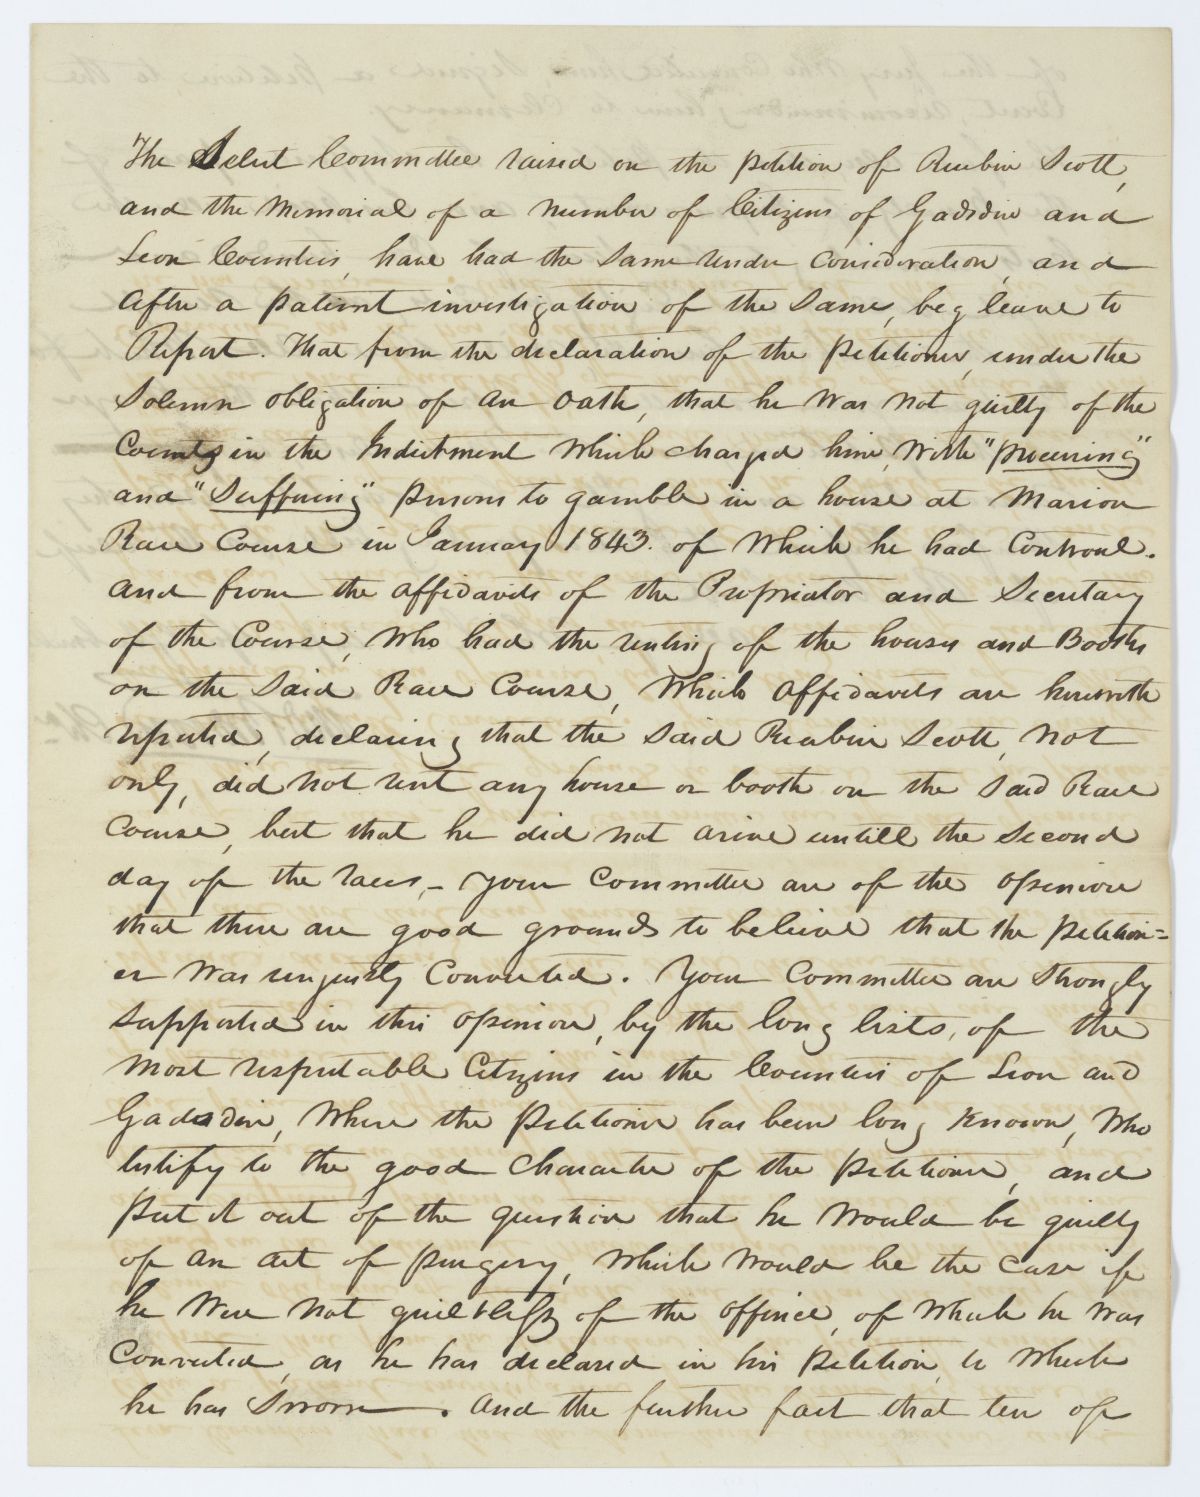 The Select Committee raised on the petition of Reubin Scott,
and the Memorial of a number of Citizens of Gadsden and
Leon Counties, have had the same under consideration, and
after a patient investigation of the same, beg leave to
Report. That from the declaration of the petitioner, under the
Solemn obligation of an Oath, that he was not guilty of the
Counts in the Indictment which charged him, with "procuring"
and "Suffering" persons to gamble in a house at Marion
Race Course in January 1843. of which he had Controul.
And from the affidavits of the Propriator and Secretary
of the Course, who had the renting of the houses and Booths
on the said Race Course, which affidavits are herewith
reported, declaring that the said Reubin Scott, not
only, did not rent any house or booth on the said Race
Course, but that he did not arive untill the second
day of the races,- your Committee are of the opinion
that there are good grounds to believe that the petition=
er was unjustly Convicted. Your Committee are strongly
supported in this opinion, by the long lists, of the
most respectable Citizens in the Counties of Leon and
Gadsden, Where the Petitioner has been long Known, Who
testify to the good Character of the petitioner, and
put it out of the question that he would be guilty
of an act of purgery, which would be the case if
he were not guiltless of the offince, of which he was
Convicted, as he has declared in his Petition, to which
he has Sworn. And the further fact that ten of